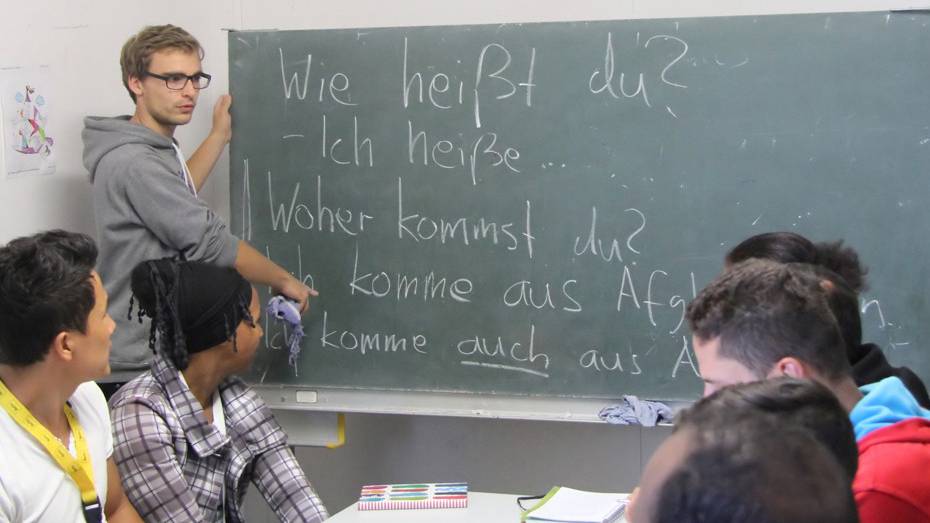 Wie heißt du?
- Ich heiße ...
Woher kommst du?
Ich komme aus
Ich komme auch aus